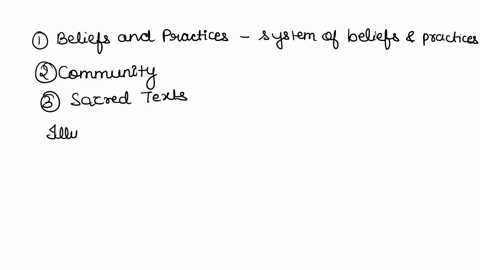 ① Beliefs and Practices - system of beliefs & practices
② Community
③ Sacred Texts